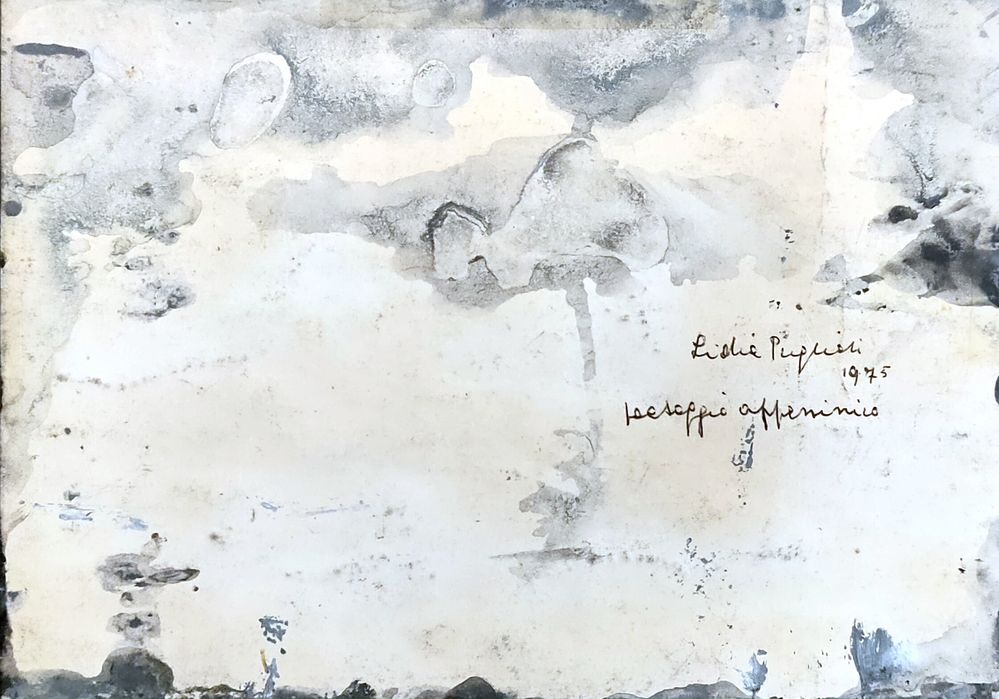 Lidia Puglioli
1975
paesaggio appenninico